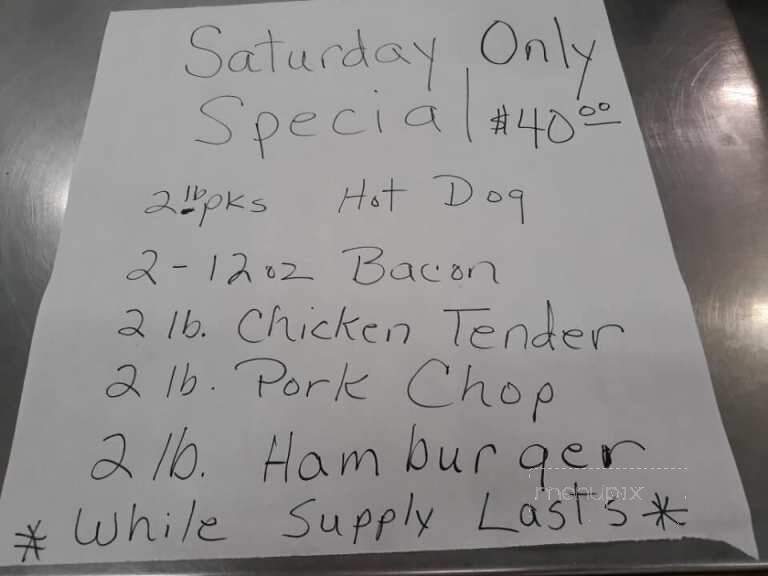 Saturday Only
Special $40.00
2 lb pks Hot Dog
2-12oz Bacon
2 lb. Chicken Tender
2 lb. Pork Chop
2 lb. Hamburger
menupix
* While Supply Lasts *